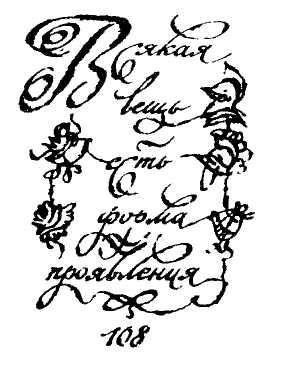 Всякая
вещь
есть
форма
проявления
108